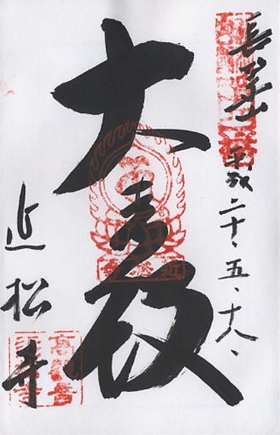 長等山
平成二十・五・十八、
大悲殿
近松寺